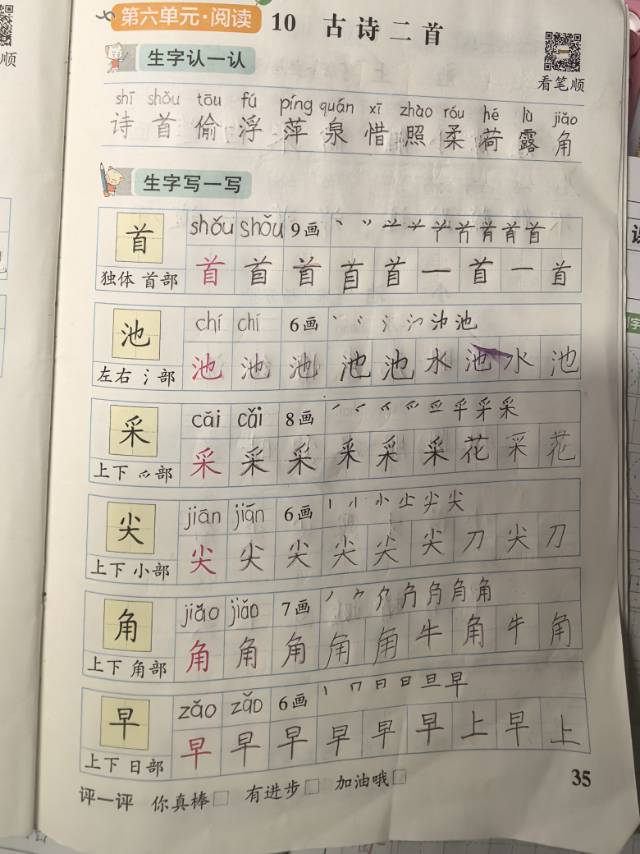 第六单元·阅读 10 古诗二首
顺
看笔顺
生字认一认
shī shǒu tōu fú píng quán xī zhào róu hé lù jiǎo
诗 首 偷 浮 萍 泉 惜 照 柔 荷 露 角
生字写一写
首 shǒu shǒu 9画
独体 首部 首 首 首 首 首 一 首 一 首
池 chí chí 6画
左右 氵部 池 池 池 池 池 水 池 水 池
采 cǎi cǎi 8画
上下 爫部 采 采 采 采 采 采 花 采 花
尖 jiān jiān 6画
上下 小部 尖 尖 尖 尖 尖 尖 刀 尖 刀
角 jiǎo jiǎo 7画
上下 角部 角 角 角 角 角 牛 角 牛 角
早 zǎo zǎo 6画
上下 日部 早 早 早 早 早 早 上 早 上
评一评 你真棒□ 有进步□ 加油哦□
35